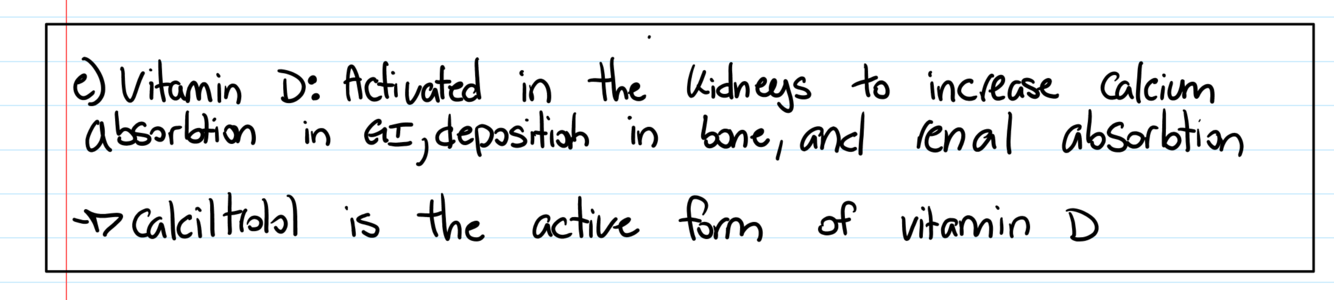 e) Vitamin D: Activated in the kidneys to increase calcium
absorbtion in GI, deposition in bone, and renal absorbtion
→ Calciltrolol is the active form of vitamin D